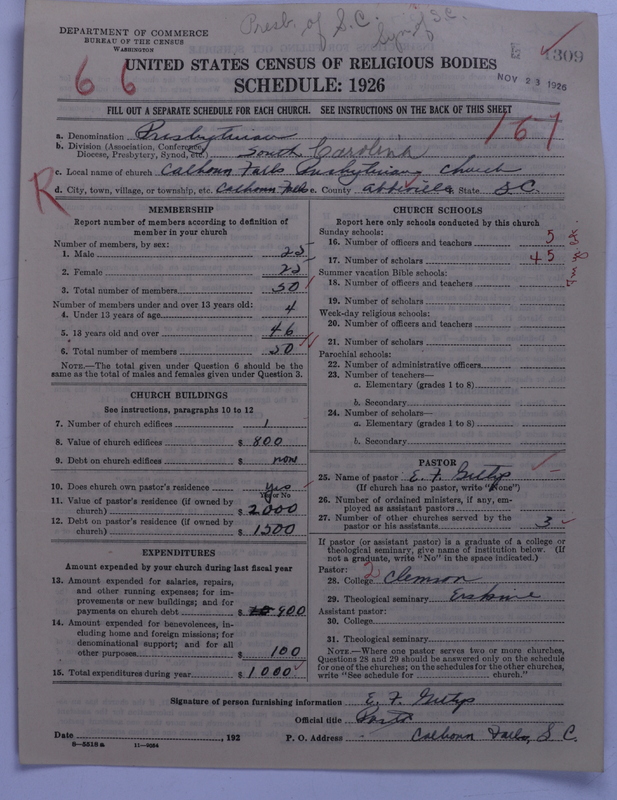 Presb. of S.C.
Syn of S.C.
DEPARTMENT OF COMMERCE
BUREAU OF THE CENSUS
WASHINGTON
E 4309
NOV 23 1926
6 6
UNITED STATES CENSUS OF RELIGIOUS BODIES
SCHEDULE: 1926
FILL OUT A SEPARATE SCHEDULE FOR EACH CHURCH. SEE INSTRUCTIONS ON THE BACK OF THIS SHEET
167
a. Denomination Presbyterian
b. Division (Association, Conference, Diocese, Presbytery, Synod, etc.) South Carolina
c. Local name of church Calhoun Falls Presbyterian Church
R
d. City, town, village, or township, etc. Calhoun Falls e. County Abbeville f. State S.C.
MEMBERSHIP
Report number of members according to definition of
member in your church
Number of members, by sex:
1. Male 25
2. Female 25
3. Total number of members 50
Number of members under and over 13 years old:
4. Under 13 years of age 4
5. 13 years old and over 46
6. Total number of members 50
NOTE.—The total given under Question 6 should be the
same as the total of males and females given under Question 3.
CHURCH BUILDINGS
See instructions, paragraphs 10 to 12
7. Number of church edifices 1
8. Value of church edifices $ 800
9. Debt on church edifices $ none
10. Does church own pastor's residence yes
Yes or No
11. Value of pastor's residence (if owned by
church) $ 2000
12. Debt on pastor's residence (if owned by
church) $ 1500
EXPENDITURES
Amount expended by your church during last fiscal year
13. Amount expended for salaries, repairs,
and other running expenses; for im-
provements or new buildings; and for
payments on church debt $ 900
14. Amount expended for benevolences, in-
cluding home and foreign missions; for
denominational support; and for all
other purposes $ 100
15. Total expenditures during year $ 1000
CHURCH SCHOOLS
Report here only schools conducted by this church
Sunday schools:
16. Number of officers and teachers 5
17. Number of scholars 45
Summer vacation Bible schools:
18. Number of officers and teachers
19. Number of scholars
Week-day religious schools:
20. Number of officers and teachers
21. Number of scholars
Parochial schools:
22. Number of administrative officers
23. Number of teachers—
a. Elementary (grades 1 to 8)
b. Secondary
24. Number of scholars—
a. Elementary (grades 1 to 8)
b. Secondary
PASTOR
25. Name of pastor E. F.
(If church has no pastor, write "None")
26. Number of ordained ministers, if any, em-
ployed as assistant pastors
27. Number of other churches served by the
pastor or his assistants 3
If pastor (or assistant pastor) is a graduate of a college or
theological seminary, give name of institution below. (If
not a graduate, write "No" in the space indicated.)
Pastor:
28. College 2 Clemson
29. Theological seminary Erskine
Assistant pastor:
30. College
31. Theological seminary
NOTE.—Where one pastor serves two or more churches,
Questions 28 and 29 should be answered only on the schedule
for one of the churches; on the schedules for the other churches,
write "See schedule for church."
Signature of person furnishing information E. F.
Official title Pastor
Date , 192
P. O. Address Calhoun Falls, S. C.
8—5518 a 11—9064